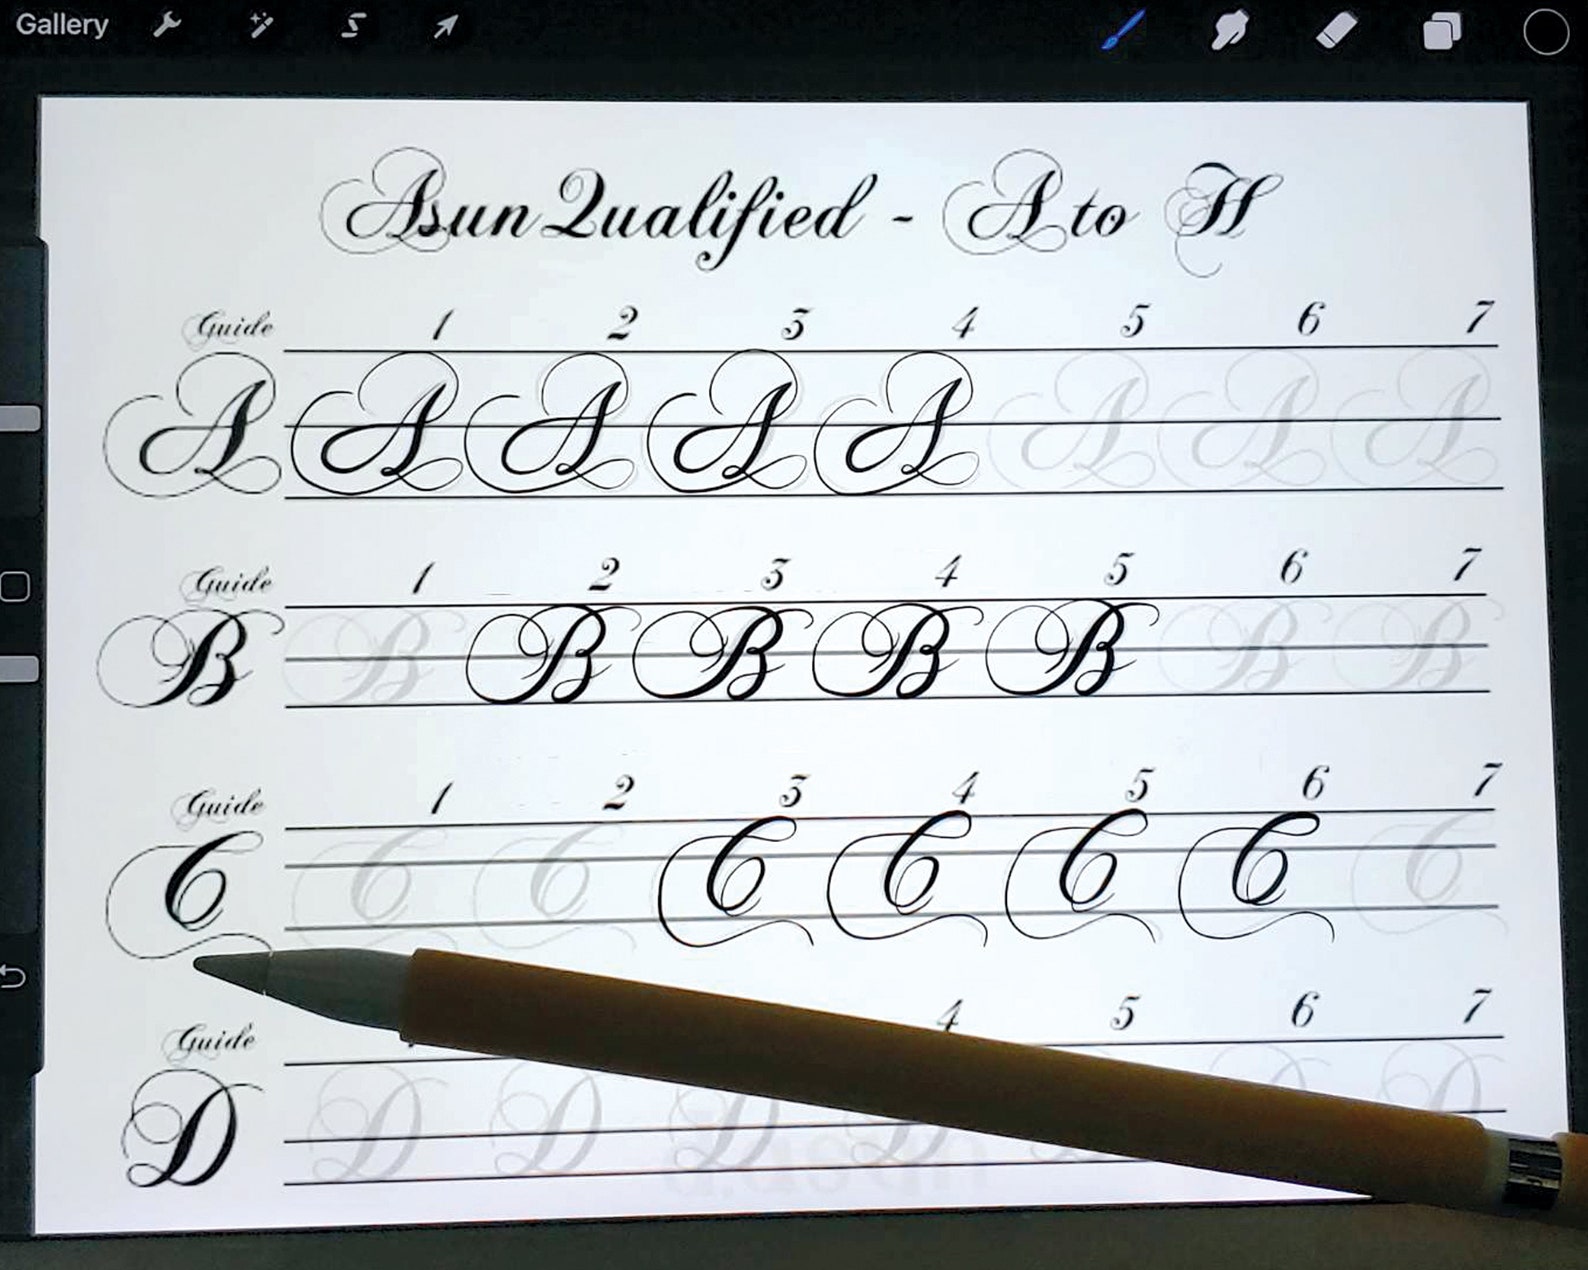 Gallery
Asun Qualified - A to H
Guide 1 2 3 4 5 6 7
A A A A A A A A
Guide 1 2 3 4 5 6 7
B B B B B B B B
Guide 1 2 3 4 5 6 7
C C C C C C C C
Guide 4 5 6 7
D D D D D D D